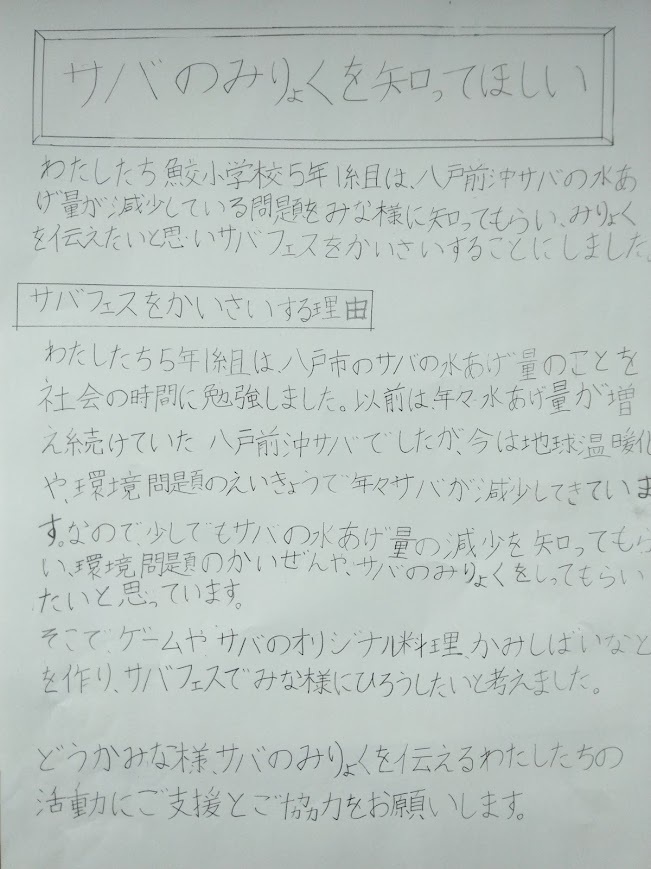 サバのみりょくを知ってほしい
わたしたち鮫小学校5年1組は、八戸前沖サバの水あ
げ量が減少している問題をみな様に知ってもらい、みりょく
を伝えたいと思いサバフェスをかいさいすることにしました。
サバフェスをかいさいする理由
わたしたち5年1組は、八戸市のサバの水あげ量のことを
社会の時間に勉強しました。以前は、年々水あげ量が増
え続けていた八戸前沖サバでしたが、今は地球温暖化
や、環境問題のえいきょうで年々サバが減少してきていま
す。なので、少しでもサバの水あげ量の減少を知ってもら
い、環境問題のかいぜんや、サバのみりょくをしってもらい
たいと思っています。
そこで、ゲームや、サバのオリジナル料理、かみしばいなど
を作り、サバフェスでみな様にひろうしたいと考えました。
どうかみな様、サバのみりょくを伝えるわたしたちの
活動にご支援とご協力をお願いします。